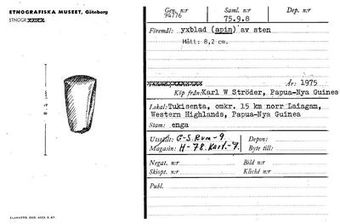 ETNOGRAFISKA MUSEET, Göteborg
ETNOGR
Gen. n:r
94776
Saml. n:r
75.9.8
Dep. n:r
Föremål: yxblad (apin) av sten
Mått: 8,2 cm.
8,2 cm
År: 1975
Köp från: Karl W Ströder, Papua-Nya Guinea
Lokal: Tukisenta, omkr. 15 km norr Laiagam,
Western Highlands, Papua-Nya Guinea
Stam: enga
Utställ: G-S. Rum-9.
Magasin: H-78. Karl.-7.
Depon:
Byte till:
Negat. n:r
Bild n:r
Skiopt. n:r
Kliché n:r
Publ.